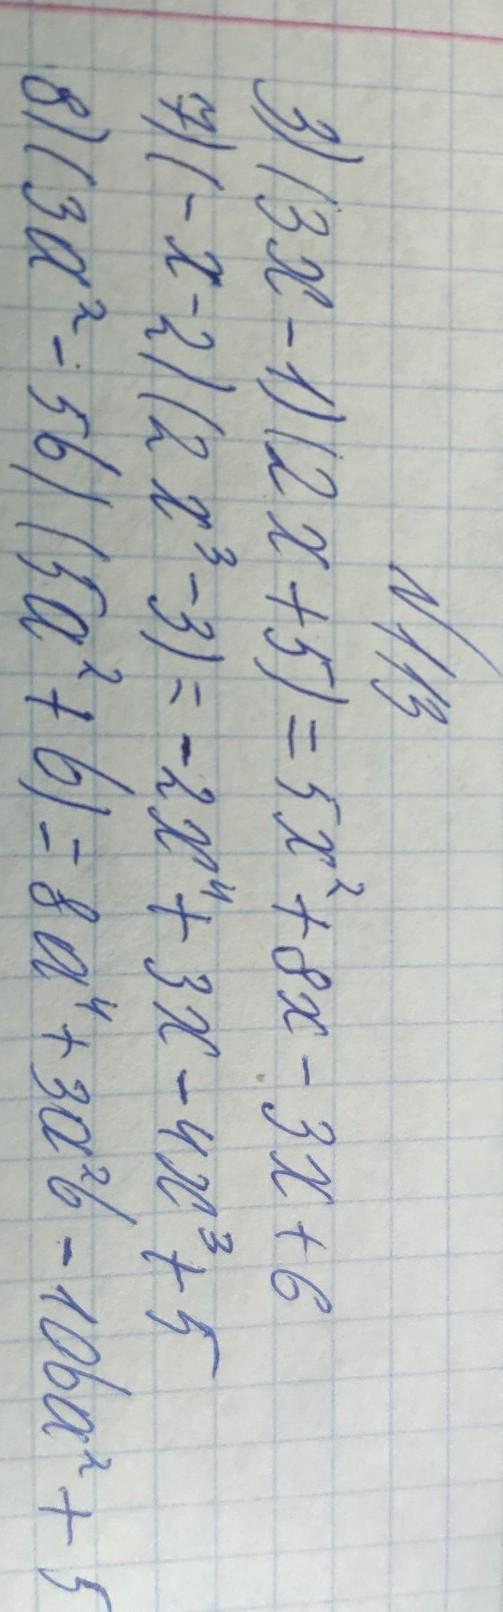 N113
3) (3x - 1)(2x + 5) = 5x² + 8x - 3x + 6
7) (-x - 2)(2x³ - 3) = -2x⁴ + 3x - 4x³ + 5
8) (3a² - 5b)(5a² + b) = 8a⁴ + 3a²b - 10ba² + 5